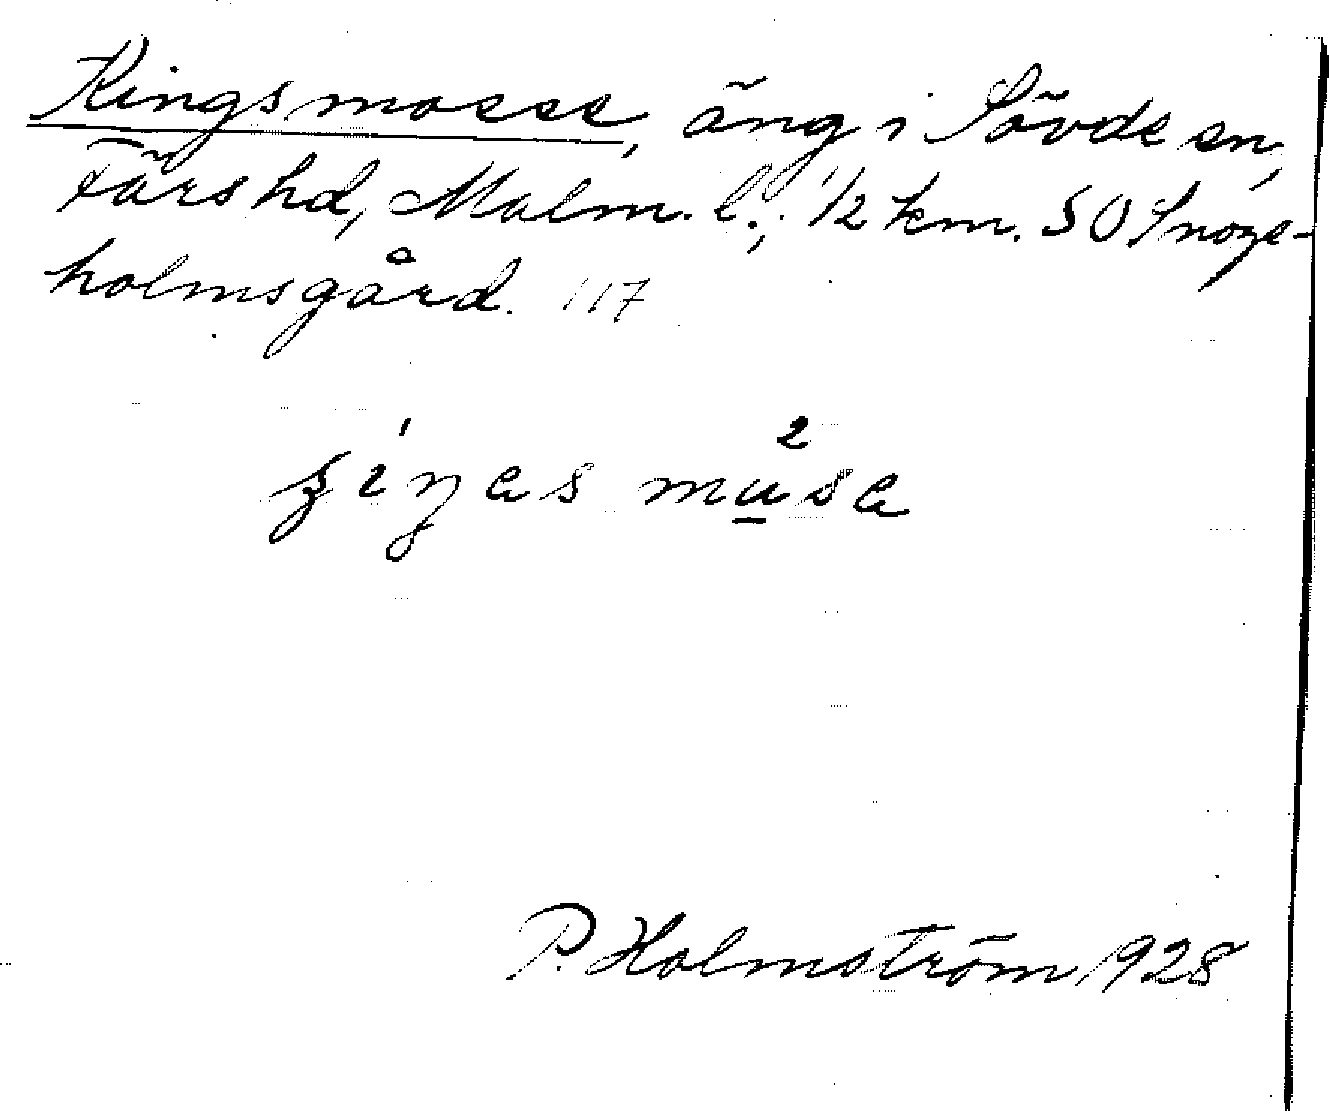 Kingsmosse, äng i Sövde sn,
Färs hd, Malm. l., 1/2 km. SO Snoge-
holmsgård. 117
P. Holmström 1928